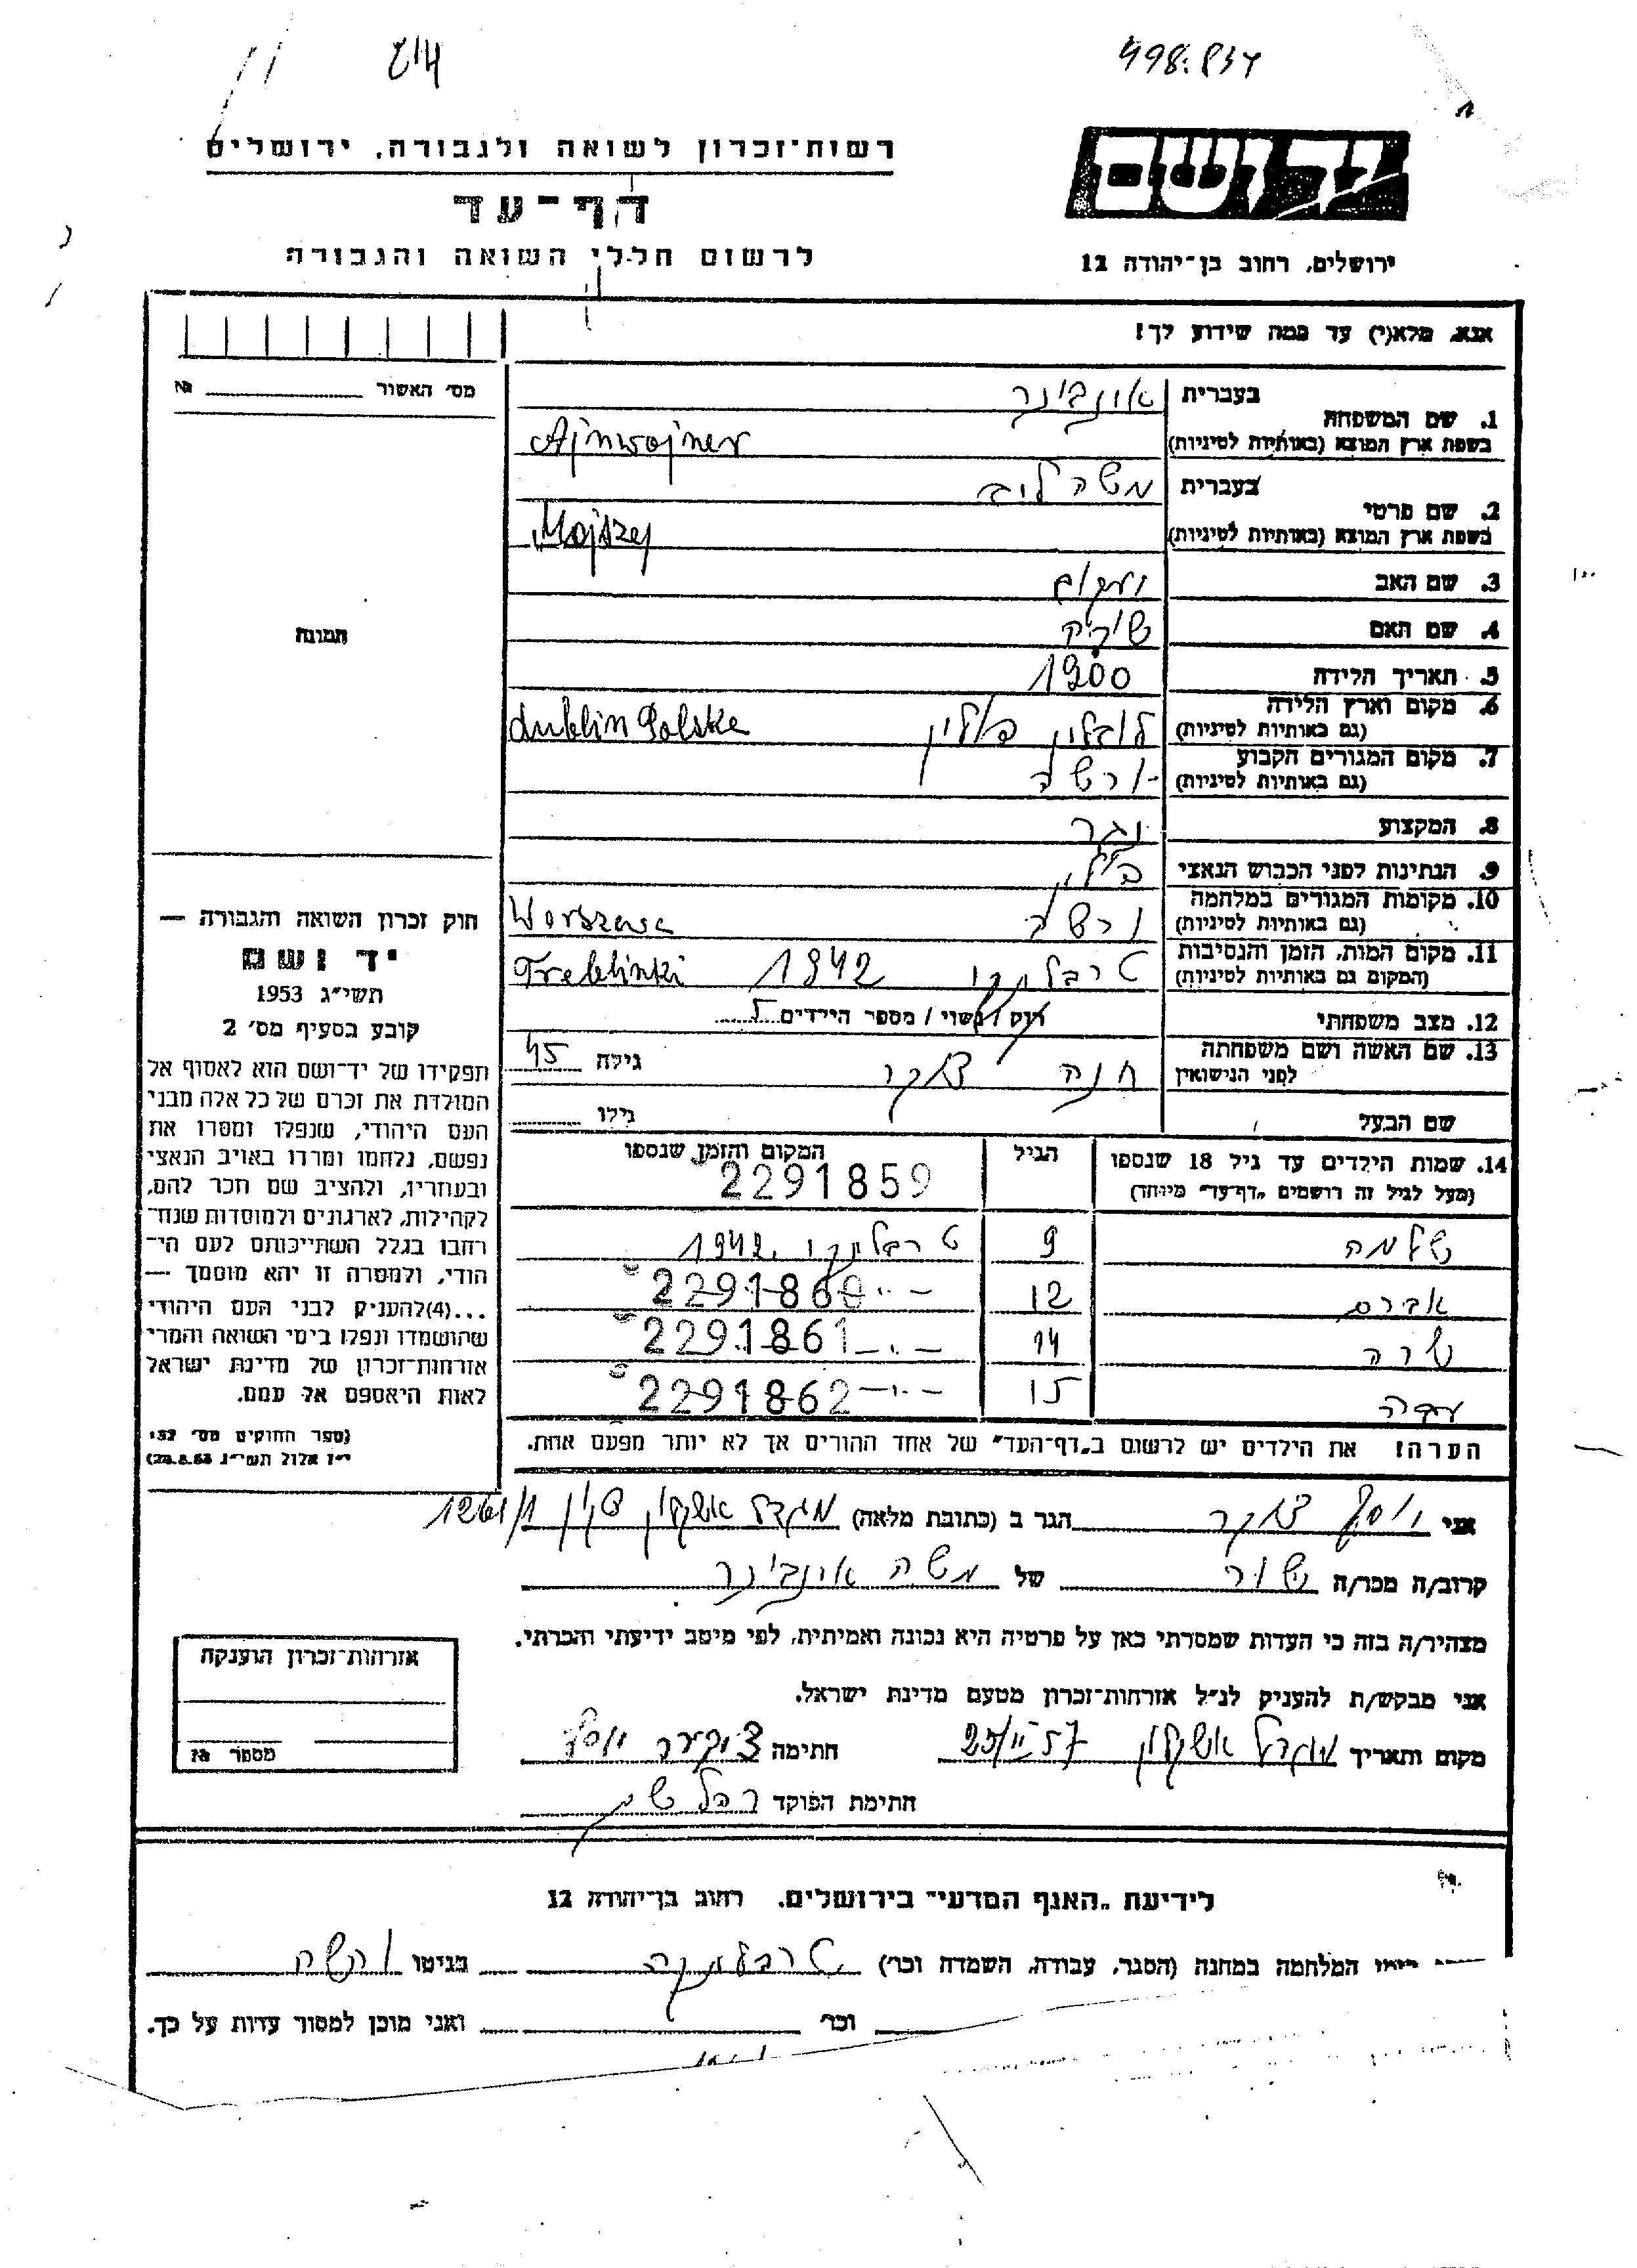 498.837
214
יד ושם
רשות־זכרון לשואה ולגבורה, ירושלים
דף־עד
לרשום חללי השואה והגבורה
ירושלים, רחוב בן־יהודה 12
אנא, מלא(י) עד כמה שידוע לך!
מס׳ האשור № 
1. שם המשפחה
בעברית אינבינר
בשפת ארץ המוצא (באותיות לטיניות) Ajnwajner
2. שם פרטי
בעברית משה ליב
בשפת ארץ המוצא (באותיות לטיניות) Mojszej
3. שם האב
4. שם האם
5. תאריך הלידה 1900
6. מקום וארץ הלידה
(גם באותיות לטיניות) לובלין פולין Lublin Polske
7. מקום המגורים הקבוע
(גם באותיות לטיניות) ורשה
8. המקצוע נגר
9. הנתינות לפני הכבוש הנאצי פולין
10. מקומות המגורים במלחמה
(גם באותיות לטיניות) ורשה Worszawa
11. מקום המות, הזמן והנסיבות
(המקום גם באותיות לטיניות) טרבלינקי 1942 Treblinki
12. מצב משפחתי רווק / נשוי / מספר הילדים 5
13. שם האשה ושם משפחתה
לפני הנישואין חנה צוקר גילה 45
שם הבעל גילו
14. שמות הילדים עד גיל 18 שנספו
(מעל לגיל זה רושמים "דף־עד" מיוחד)
הגיל
המקום והזמן שנספו
2291859
שלמה 9 טרבלינקי 1942
אברם 12 2291860 -"-
שרה 14 2291861 -"-
15 2291862 -"-
הערה! את הילדים יש לרשום ב"דף־העד" של אחד ההורים אך לא יותר מפעם אחת.
תמונה
חוק זכרון השואה והגבורה —
יד ושם
תשי״ג 1953
קובע בסעיף מס׳ 2
תפקידו של יד־ושם הוא לאסוף אל
המולדת את זכרם של כל אלה מבני
העם היהודי, שנפלו ומסרו את
נפשם, נלחמו ומרדו באויב הנאצי
ובעוזריו, ולהציב שם וזכר להם,
לקהילות, לארגונים ולמוסדות שנח־
רבו בגלל השתייכותם לעם הי־
הודי, ולמטרה זו יהא מוסמך —
...(4)להעניק לבני העם היהודי
שהושמדו ונפלו בימי השואה והמרי
אזרחות־זכרון של מדינת ישראל
לאות היאספם אל עמם.
(ספר החוקים מס׳ 132,
י״ז אלול תשי״ג 28.8.53)
אני יוסף צוקר הגר ב (כתובת מלאה) מגדל אשקלון 1261/1
קרוב/ה מכר/ה של משה אינבינר
מצהיר/ה בזה כי העדות שמסרתי כאן על פרטיה היא נכונה ואמיתית, לפי מיטב ידיעתי והכרתי.
אני מבקש/ת להעניק לנ״ל אזרחות־זכרון מטעם מדינת ישראל.
מקום ותאריך מגדל אשקלון 25/II 57 חתימה צוקער יוסף
חתימת הפוקד
אזרחות־זכרון הוענקה
מספר №
לידיעת "האגף המדעי" בירושלים. רחוב בן־יהודה 12
המלחמה במחנה (הסגר, עבודה, השמדה וכו׳) טרבלינקה בגיטו ורשה
וכו׳ ואני מוכן למסור עדות על כך.